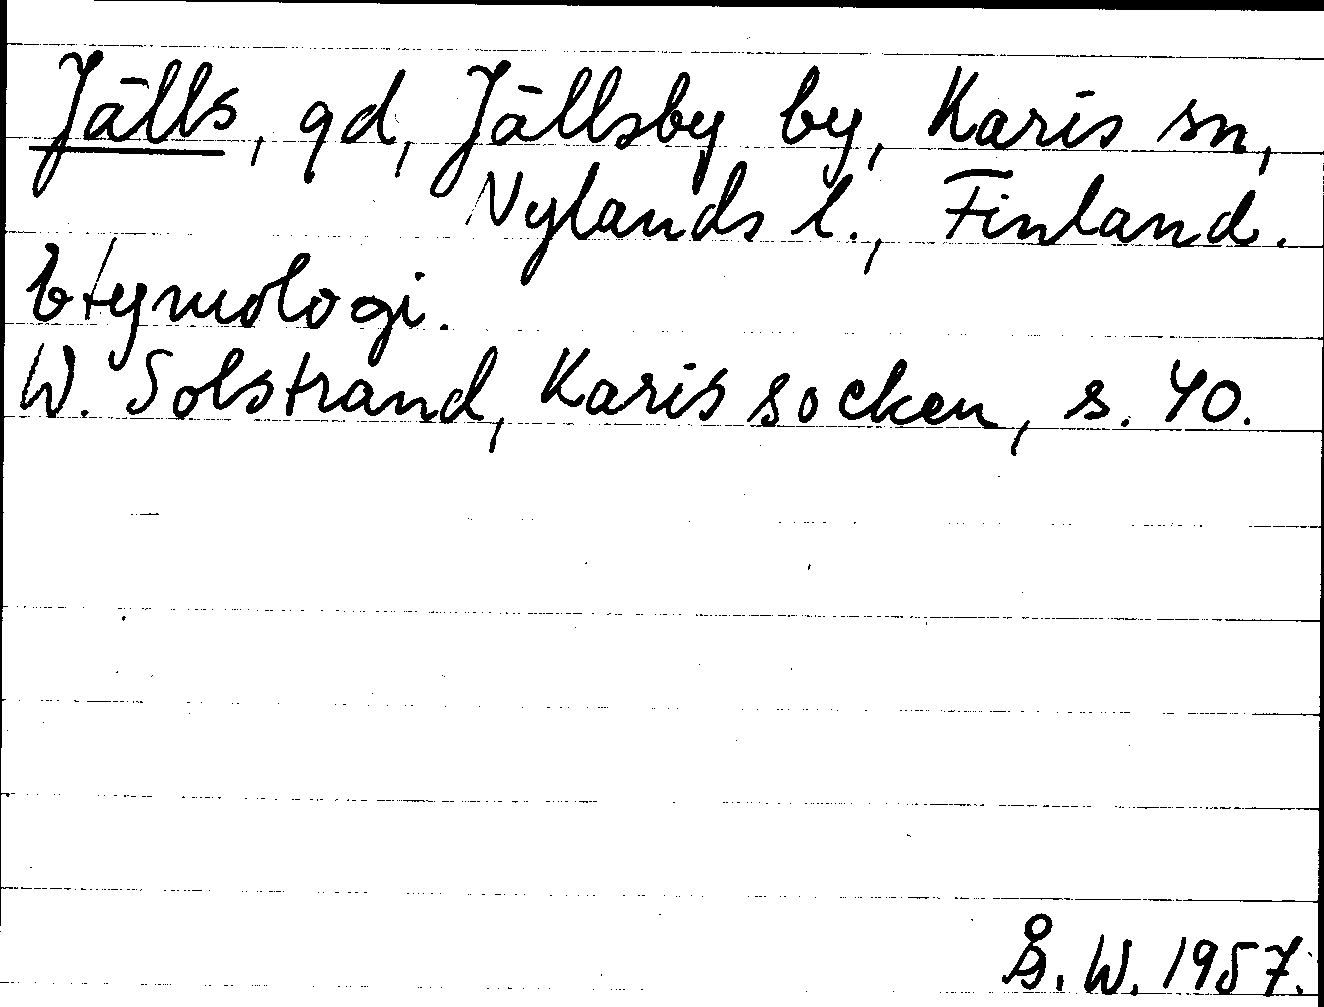 Jälls, gd, Jällsby by, Karis sn,
Nylands l., Finland.
Etymologi.
W. Solstrand, Karis socken, s. 40.
Å. W. 1957.